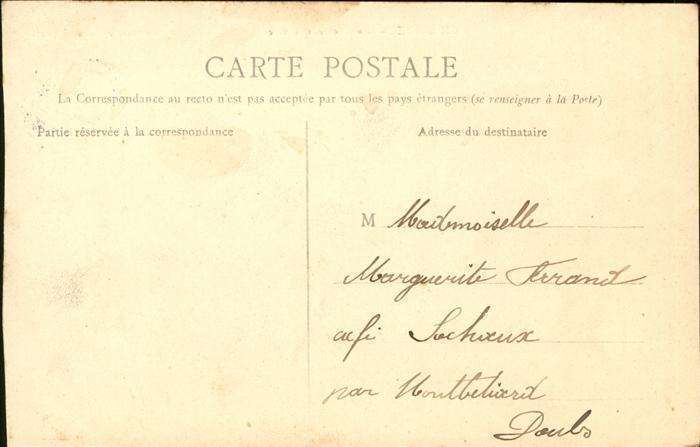 CARTE POSTALE
La Correspondance au recto n'est pas acceptée par tous les pays étrangers (se renseigner à la Poste)
Partie réservée à la correspondance
Adresse du destinataire
M Mademoiselle
Marguerite Ferrand
Sochaux
par Montbeliard
Doubs